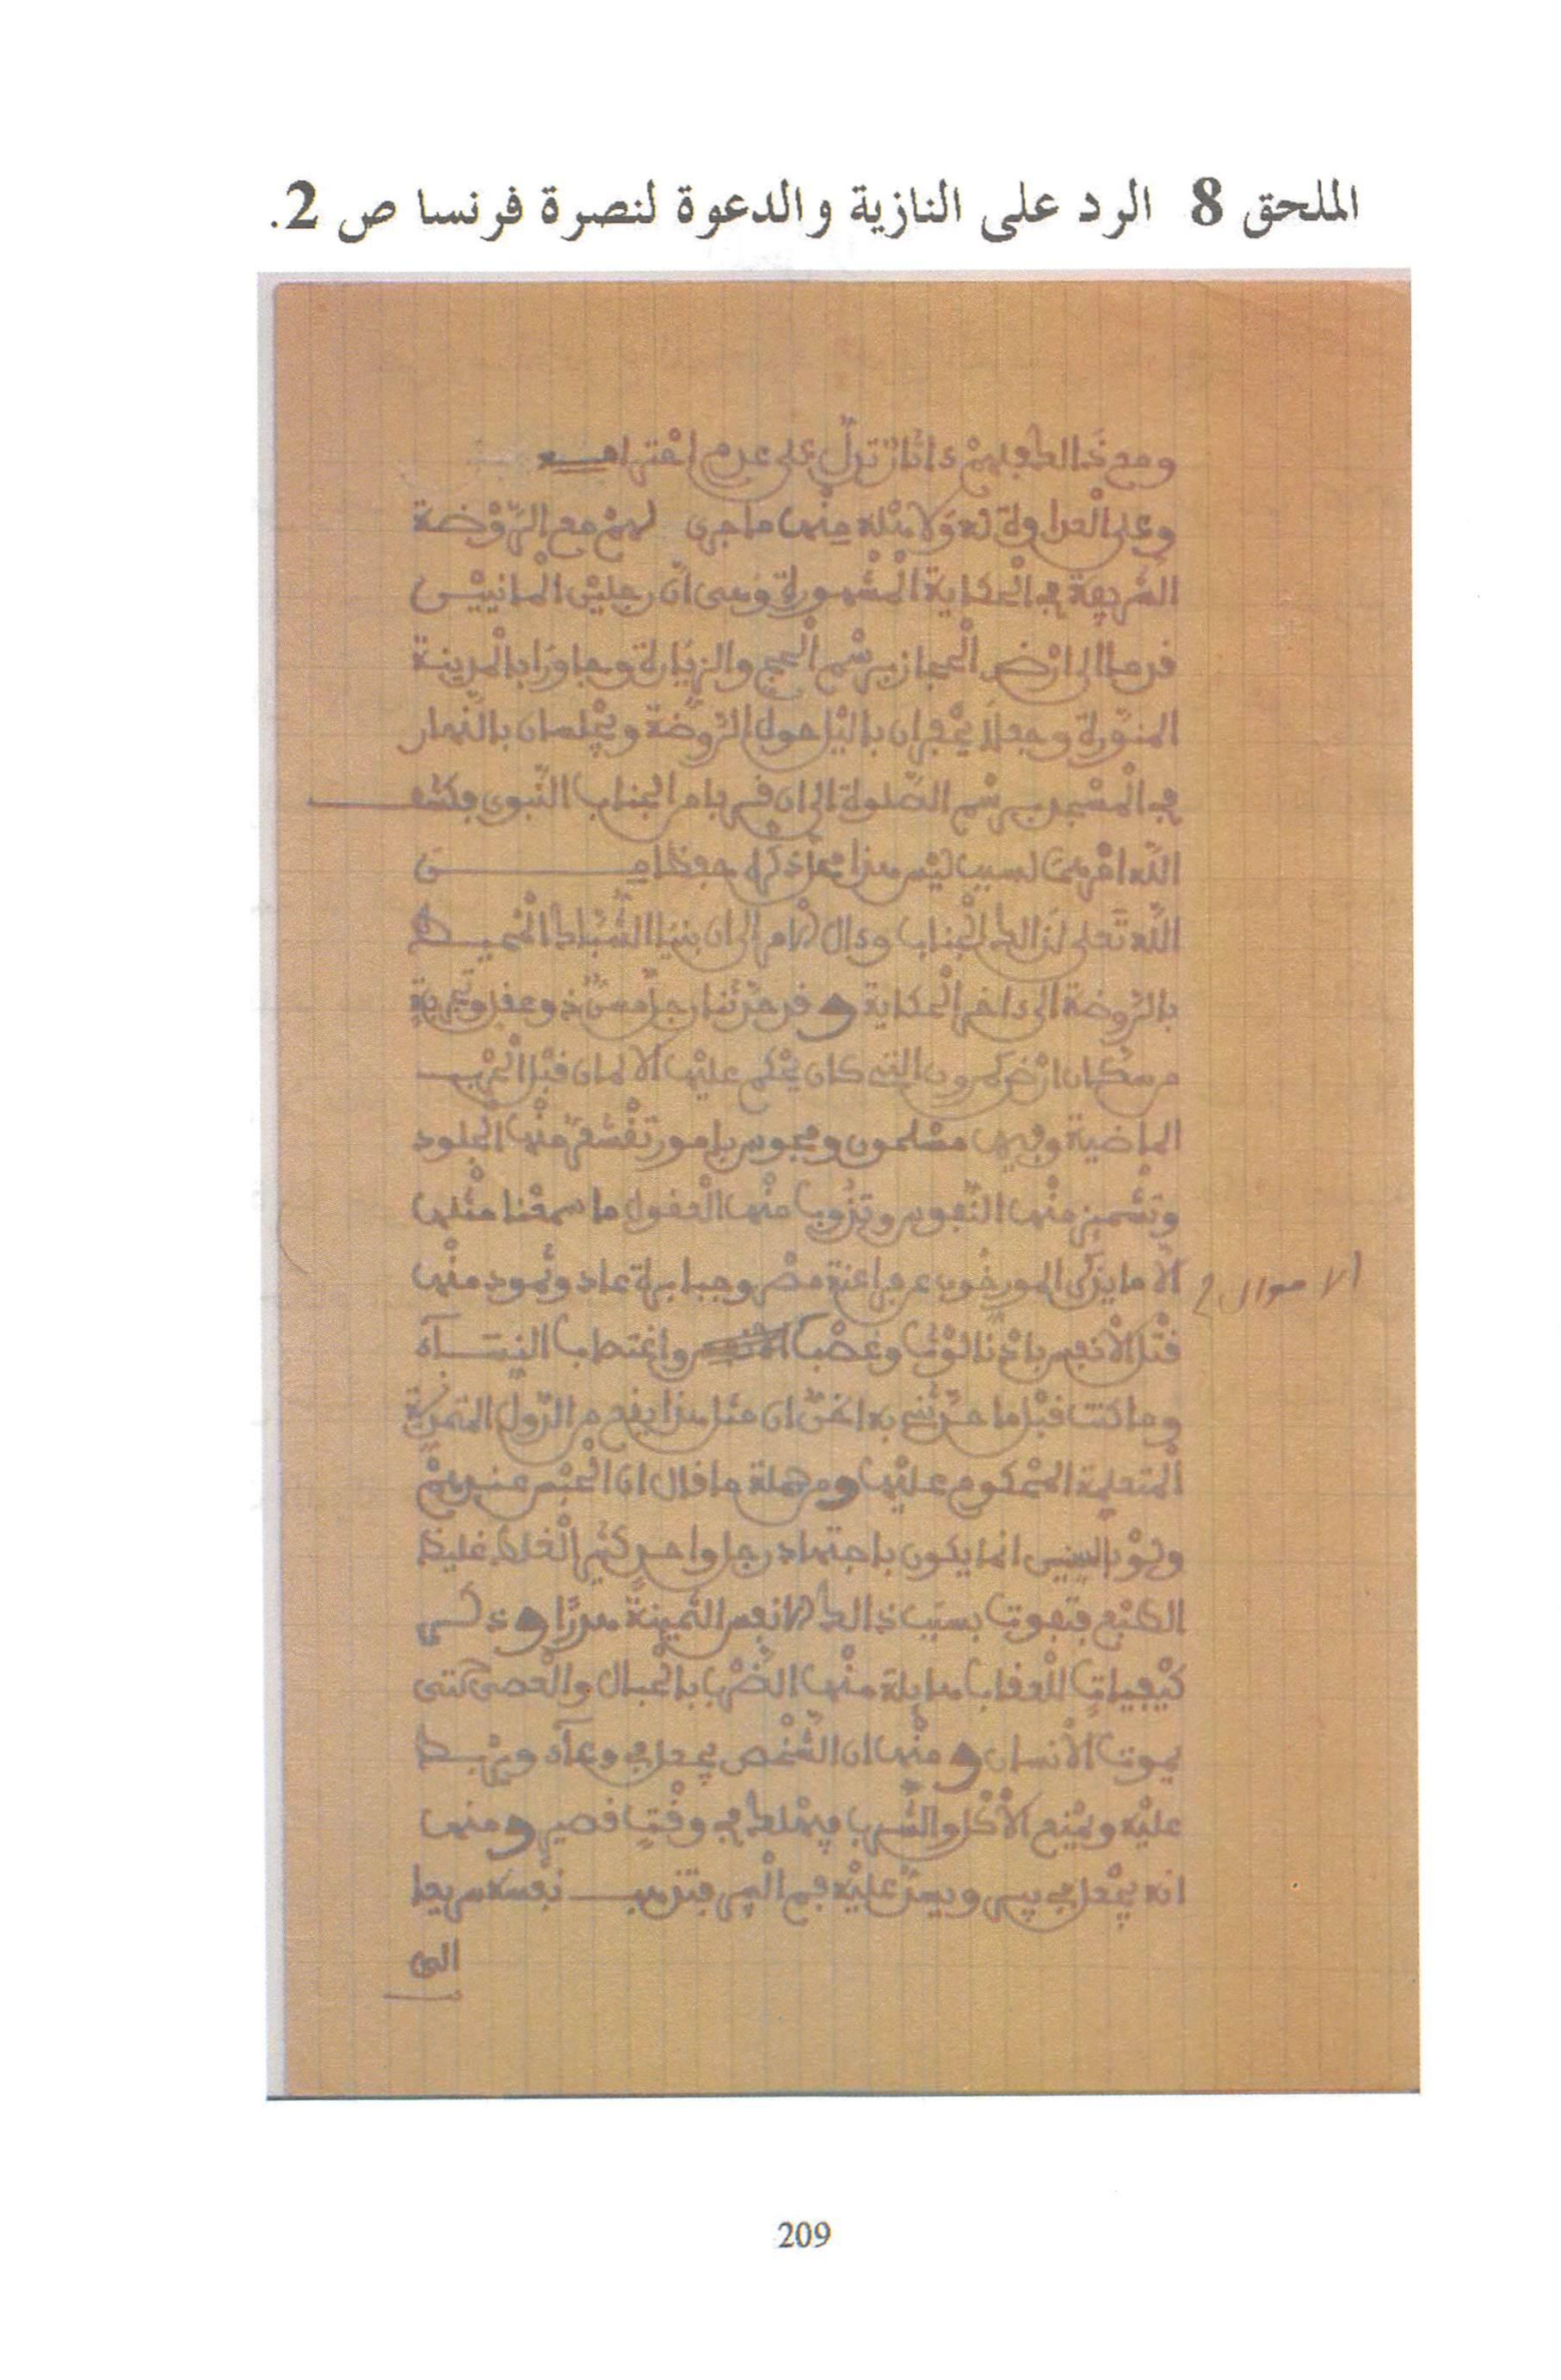 الملحق 8 الرد على النازية والدعوة لنصرة فرنسا ص 2.
ومع ذالك فلهم ءاثار تدل على عدم احترامه
وعلى العداوة له ولامته منها ما جرى لهم مع الروضة
الشريفة في الحكاية المشهورة وهى ان رجلين المانيين
قدما الى ارض الحجاز برسم الحج والزيارة وجاورا بالمدينة
المنورة وجعلا يحفران باليل حول الروضة ويجلسان بالنهار
في المسجد برسم الصلوة الى ان قربا من الجناب النبوى فكشف
الله امرهما لسبب ليس هذا محل ذكره حفظا من
الله تعلى لذالك الجناب وءال الامر الى ان بنيا الشباك المحيط
بالروضة الى ءاخر الحكاية وقد حدثنا رجل مسن ذو عقل وتجربة
من سكان ارض كمرون التى كان يحكم عليها الالمان قبل الحرب
الماضية وفيها مسلمون ومجوس بامور تقشعر منها الجلود
وتشمئز منها النفوس وتذوب منها العقول ما سمعنا مثلها
الا ما يذكر المورخون عن فراعنة مصر وجبابرة عاد وثمود منها
قتل الانفس بادنا لوث وغصب واغتصاب النساء
الاموال
وما كنت قبل ما حدثنى به اظن ان مثل هذا يقع من الدول المتمدنة
المتعلمة المحكوم عليها ومن جملة ما قال ان الحبس عندهم
ولو بالسنين انما يكون باجتهاد رجل واحد كثير الغلط غليظ
الطبع فتفوت بسبب ذالك الانفس الثمينة هدرا وذكر لى
كيفيات للعقاب هايلة منها الضرب بالحبال والعصى حتى
يموت الانسان ومنها ان الشخص يجعل في وعاء ويربط
عليه ويمنع الاكل والشرب فيهلك في وقت قصير ومنها
انه يجعل في بير ويسد عليه فم البير فتذهب نفسه سريعا